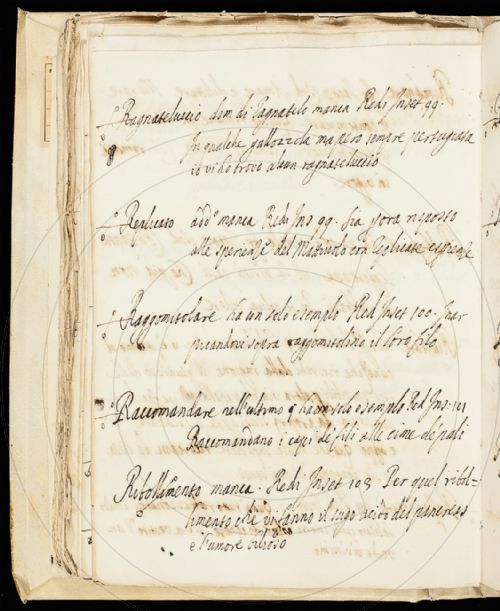 Ragnateluccio dim. di Ragnatelo manca Redi Inset 99.
In qualche gallozzola ma però sempre pertugiata
io vi ho trovo alcun ragnateluccio
Replicato add.º manca Redi Ins 99. Sia ora risposto
alle sperienze del Mattiuolo con replicate esperienze
Raggomitolare ha un solo esemplo Redi Inset 100. Inar
picandovi sopra raggomitolino il loro filo
Raccomandare nell'ultimo § ha un solo esemplo Redi Ins: 101
Raccomandano i capi de' fili alle cime de' pali
Ribollimento manca. Redi Inset 108 Per quel ribol-
limento che vi fanno il sugo acido del pancreas
e l'umore bilioso